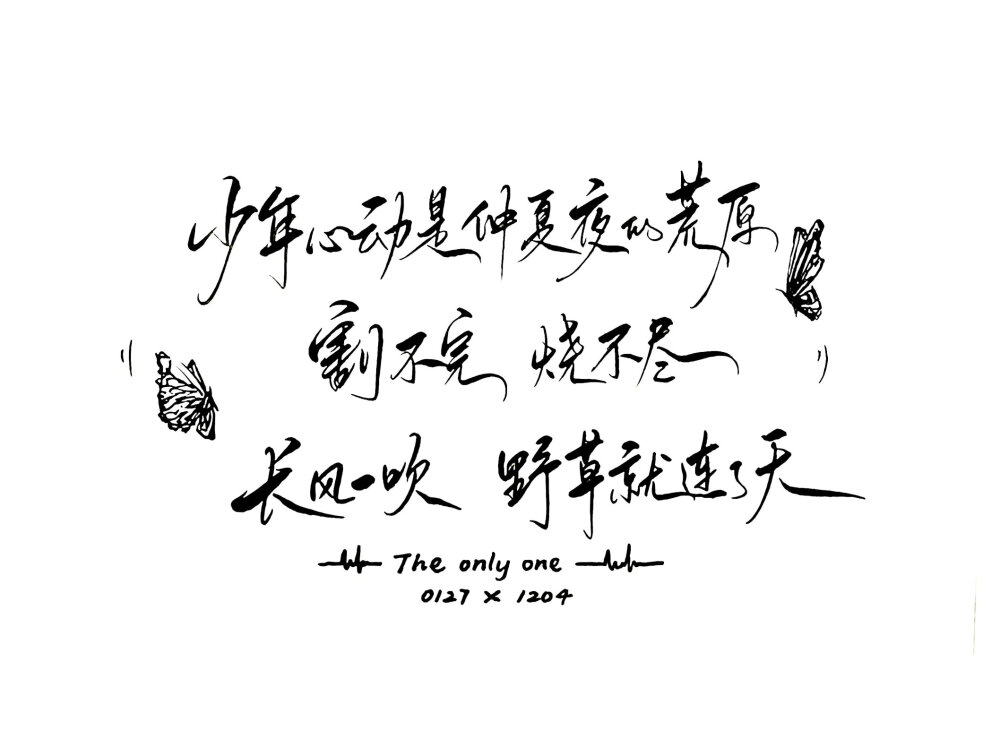 少年心动是仲夏夜的荒原
割不完 烧不尽
长风一吹 野草就连了天
The only one
0127 × 1204